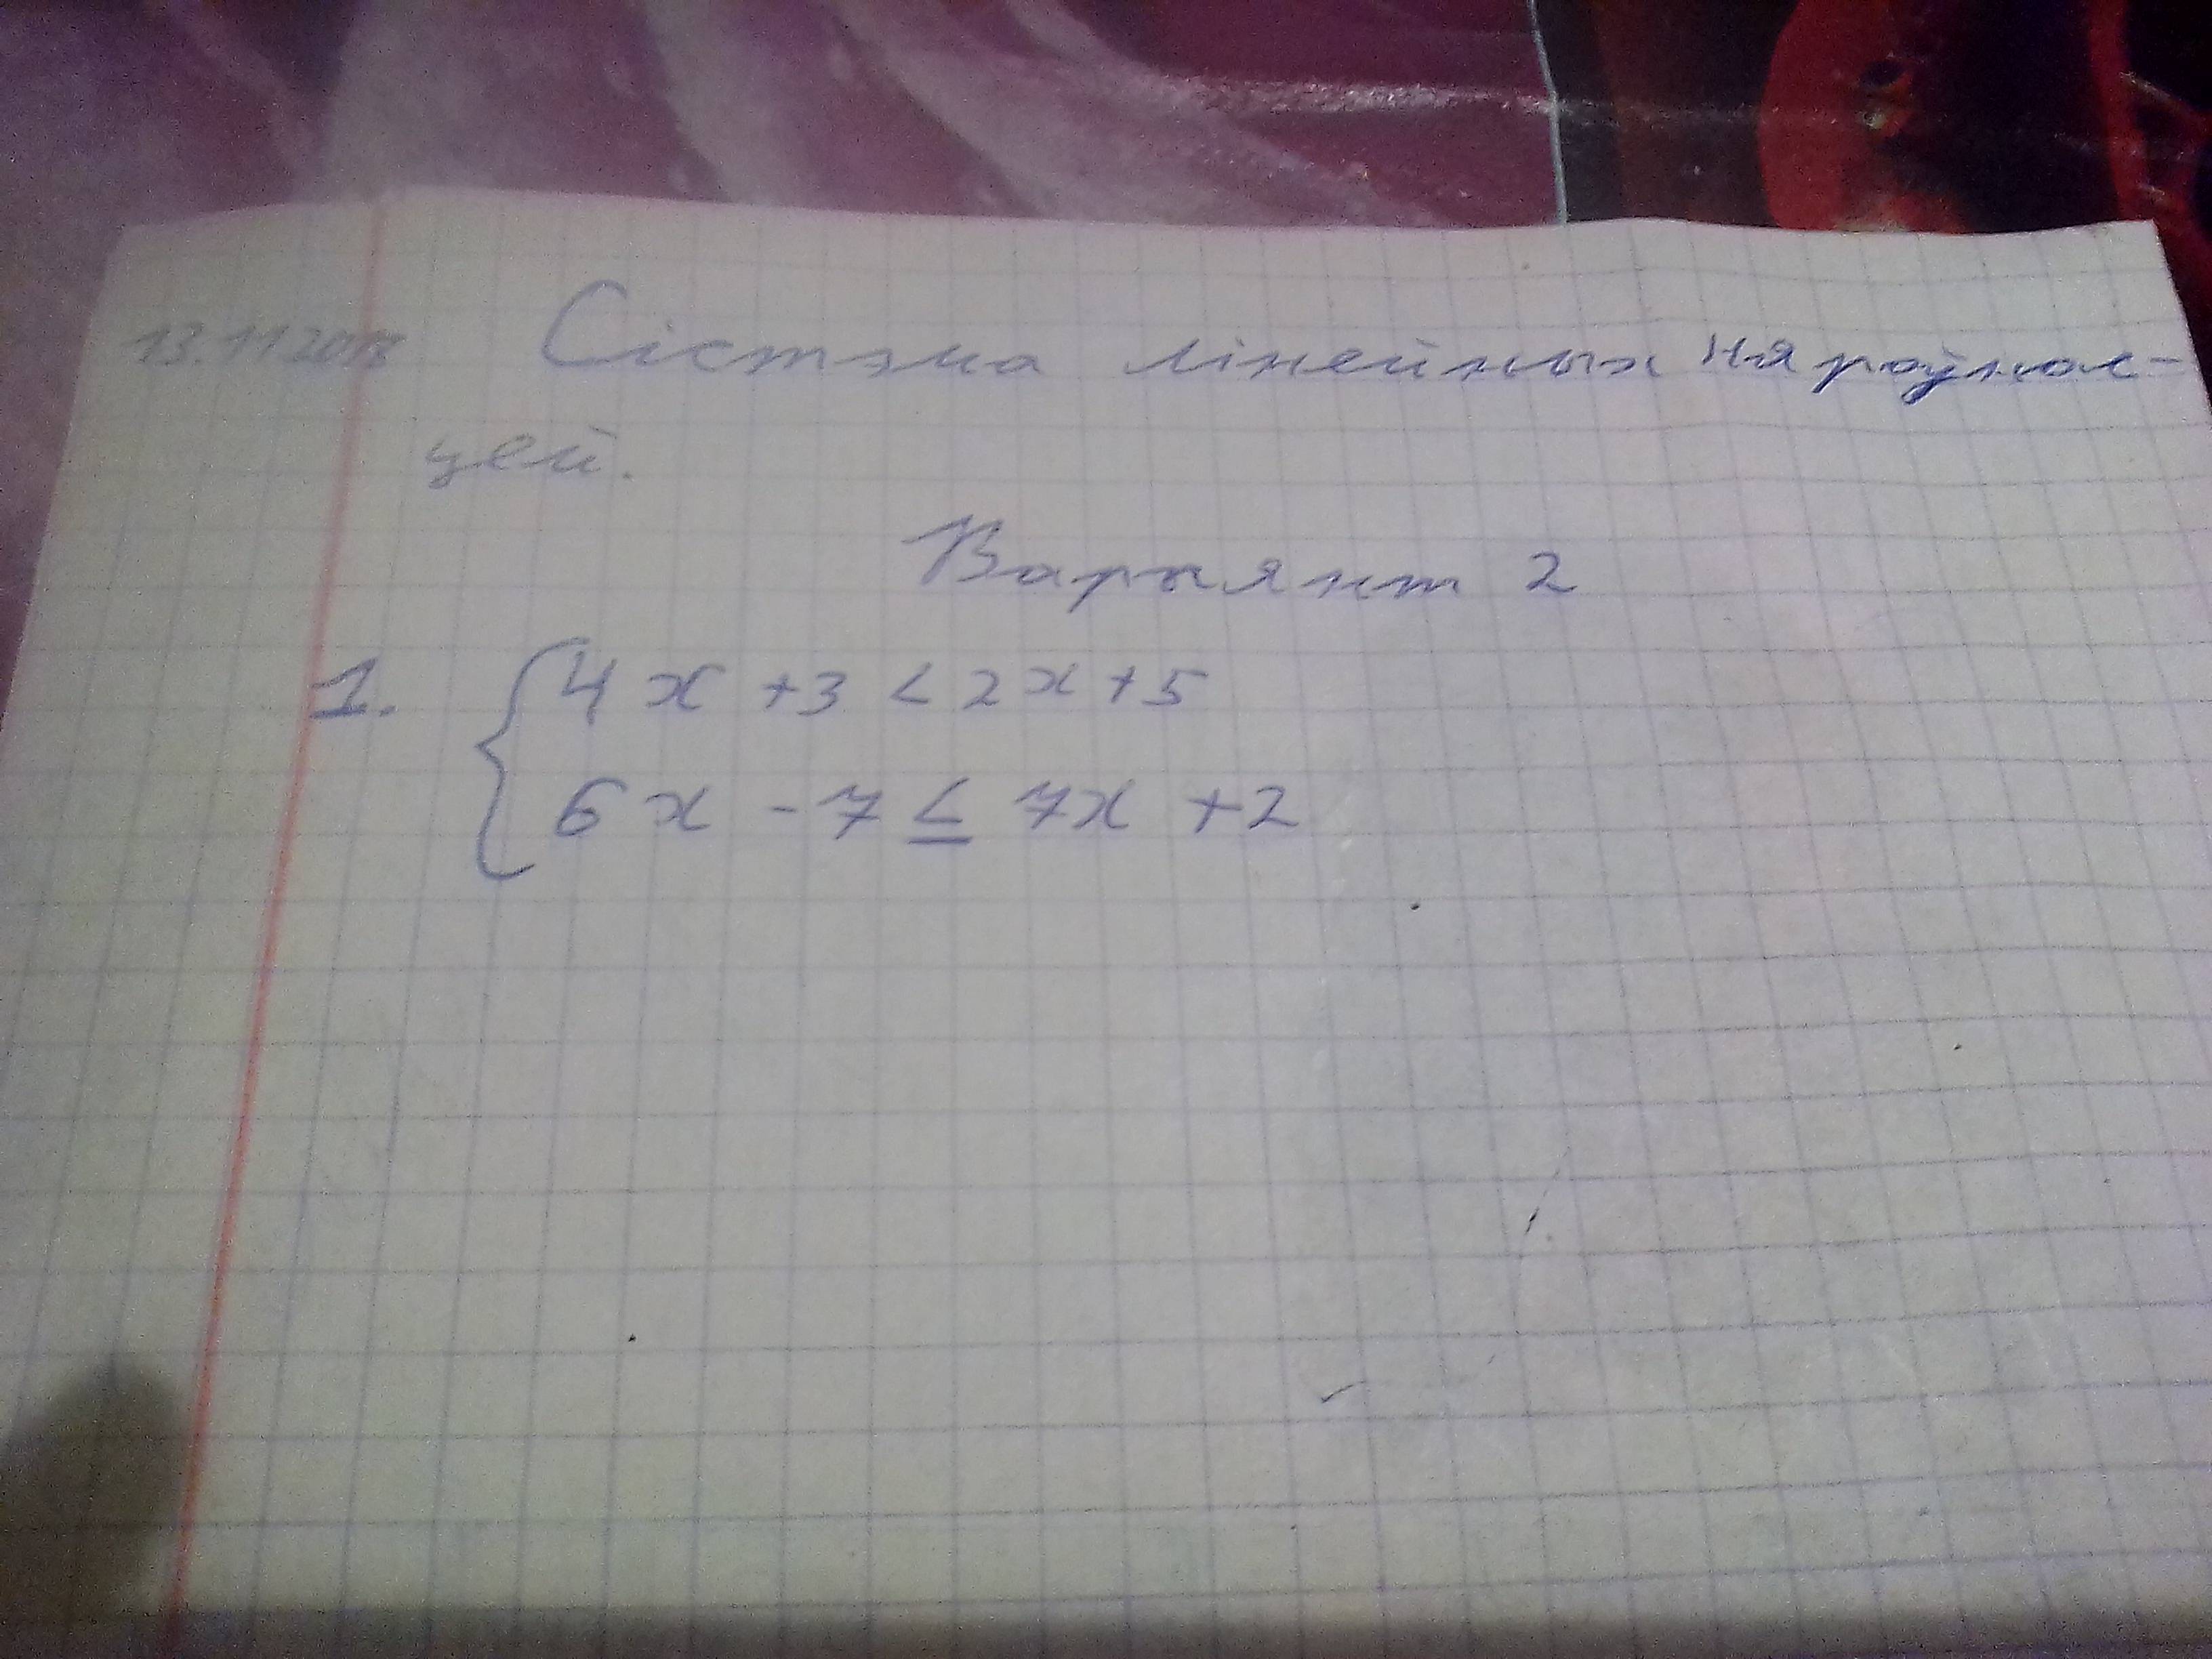 13.11 2018 Сістэма лінейных няроўнас-
цей.
Варыянт 2
1. { 4x + 3 < 2x + 5
6x - 7 ≤ 7x + 2